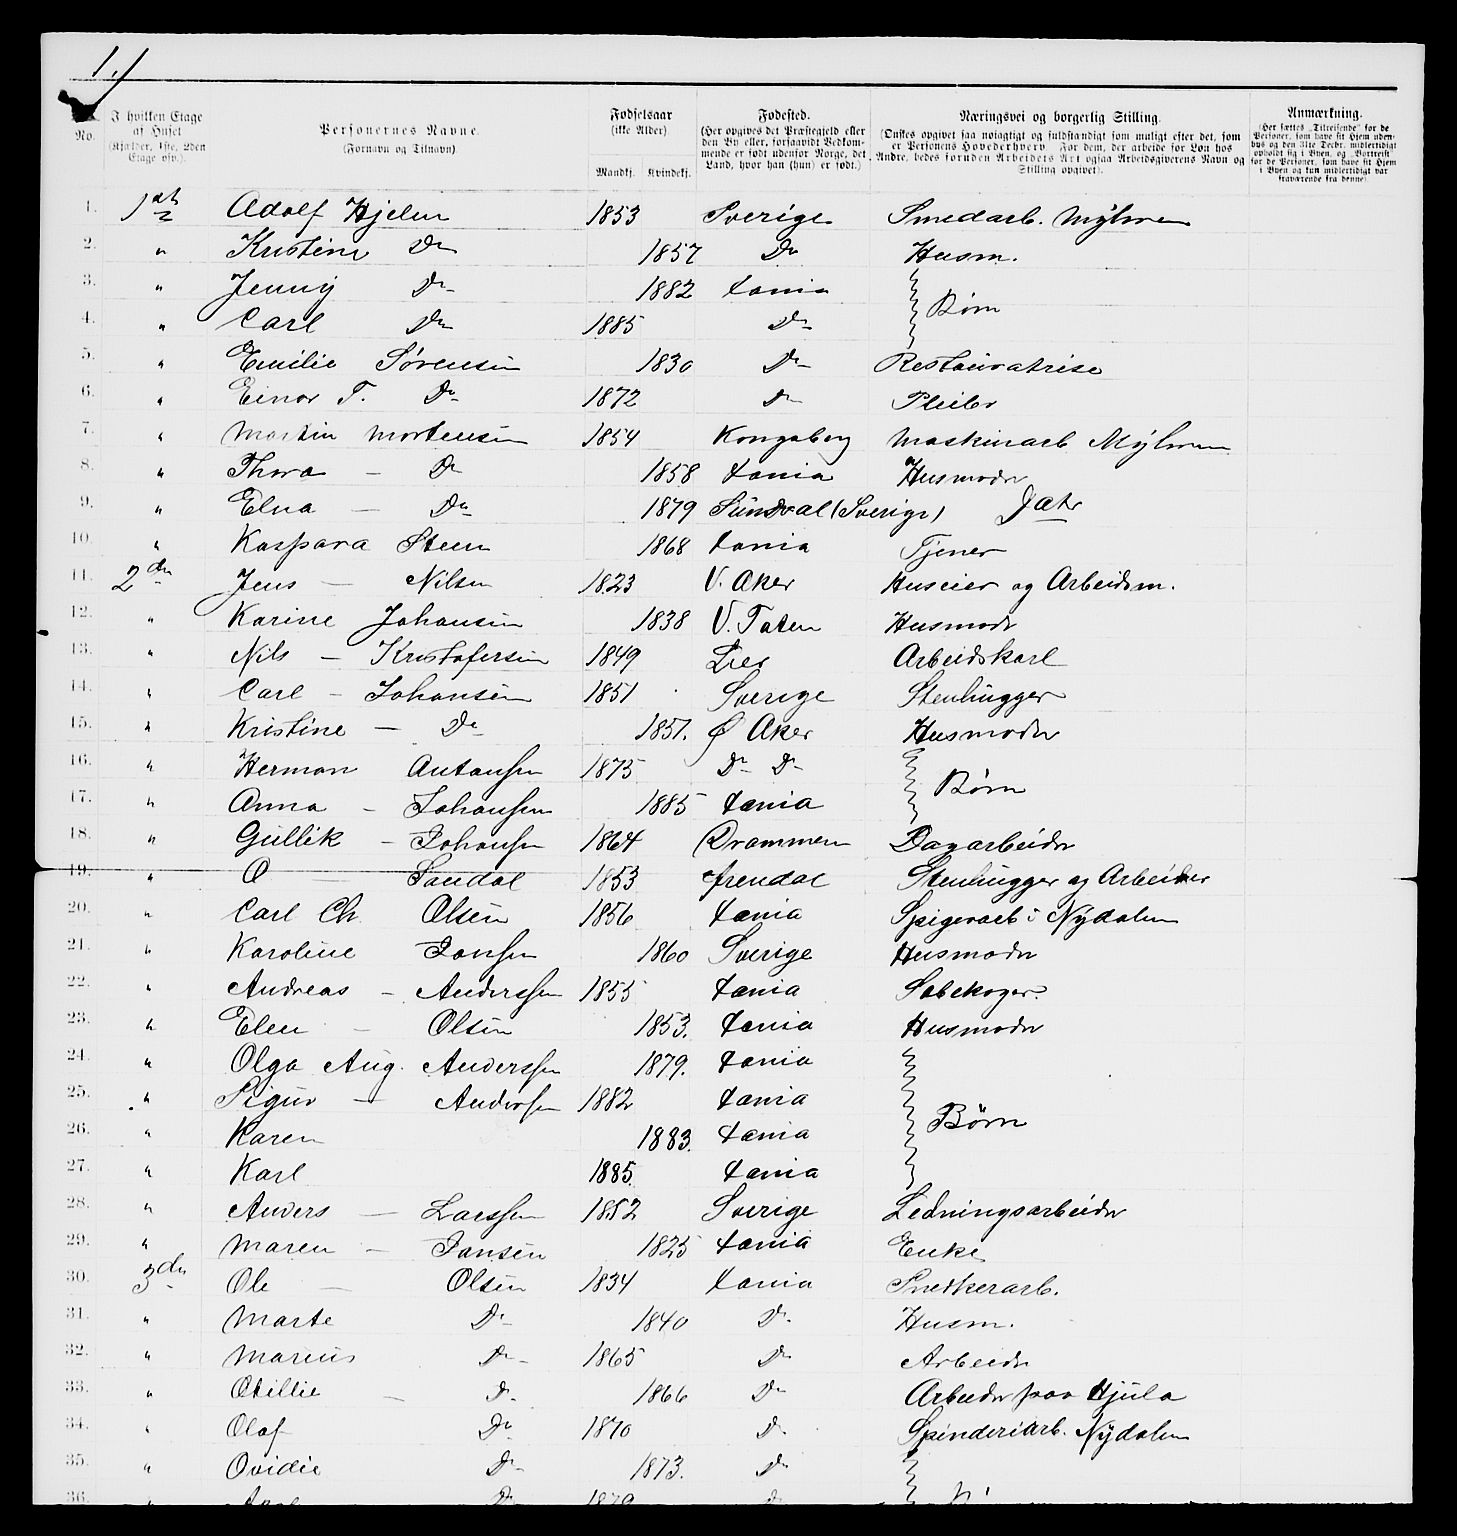 1.)
No.
I hvilken Etage af Huset (Kjælder, 1ste, 2den Etage osv.).
Personernes Navne. (Fornavn og Tilnavn).
Fødselsaar (ikke Alder) Mandkj. Kvindekj.
Fødested. (Her opgives det Præstegjeld eller den By eller, forsaavidt Vedkommende er født udenfor Norge, det Land, hvor han (hun) er født.)
Næringsvei og borgerlig Stilling. (Ønskes opgivet saa nøiagtigt og fuldstændigt som muligt efter det, som er Personens Hovederhverv. For dem, der arbeide for Løn hos Andre, bedes foruden Arbeidets Art ogsaa Arbeidsgiverens Navn og Stilling opgivet).
Anmærkning. (Her sættes „Tilreisende" for de Personer, som have sit Hjem udenbys og den 31te Decbr. midlertidigt opholdt sig i Byen, og „Bortreist" for de Personer, som have sit Hjem i Byen og kun midlertidigt var fraværende fra denne).
1. 1st Adolf Hjelm 1853 Sverige Smedarb. Mÿhren
2. " Kristine Do 1857 Do Husm.
3. " Jenny Do 1882 Xania
Børn
4. " Carl Do 1885 Do
5. " Emilie Sørensen 1830 Do Restauratrise
6. " Einar F. Do 1872 Do
7. " Martin Mortensen 1854 Kongsberg Maskinarb Mÿhren
8. " Thora – Do 1858 Xania Husmoder
9. " Elna – Do 1879 Sundval (Sverige) Datr
10. " Kaspara Steen 1868 Xania Tjener
11. 2den Jens – Nilsen 1823 V. Aker Huseier og Arbeidsm.
12. " Karine Johansen 1838 V. Toten Husmodr
13. " Nils – Kristofersen 1849 Lier Arbeidskarl
14. " Carl – Johansen 1851 Sverige Stenhugger
15. " Kristine – Do 1851. Ø Aker Husmoder
16. " Herman Antonsen 1875 Do Do
Børn
17. " Anna – Johansen 1885 Xania
18. " Gullik – Johansen 1864 Drammen Dagarbeider
19. " O Sandal 1853 Arendal Stenhugger og Arbeider
20. " Carl Ch. Olsen 1856 Xania Spigerarb i Nÿdalen
21. " Karoline Jansen 1860 Sverige Husmoder
22. " Andreas – Anderssen 1855 Xania Sæbekoger.
23. " Elen – Olsen 1853. Xania Husmoder
24. " Olga Aug. Anderssen 1879. Xania
25. " Sigur – Andersen 1882 Xania
Børn
26. " Karen 1883. Xania
27. " Karl 1885. Xania
28. " Anders – Larssen 1852 Sverige Ledningsarbeider
29. " Maren – Jansen 1825 Xania Enke
30. 3die Ole – Olsen 1834 Xania Snedkerarb.
31. " Marte Do 1840 Do Husm.
32. " Marius Do 1865 Do Arbeider
33. " Otillie – Do 1866 Do Arbeider paa Hjula
34. " Olaf Do 1870 Do Spinderiarb. Nÿdalen
35. " Ovidie Do 1873. Do
36. " Do 1879 Do